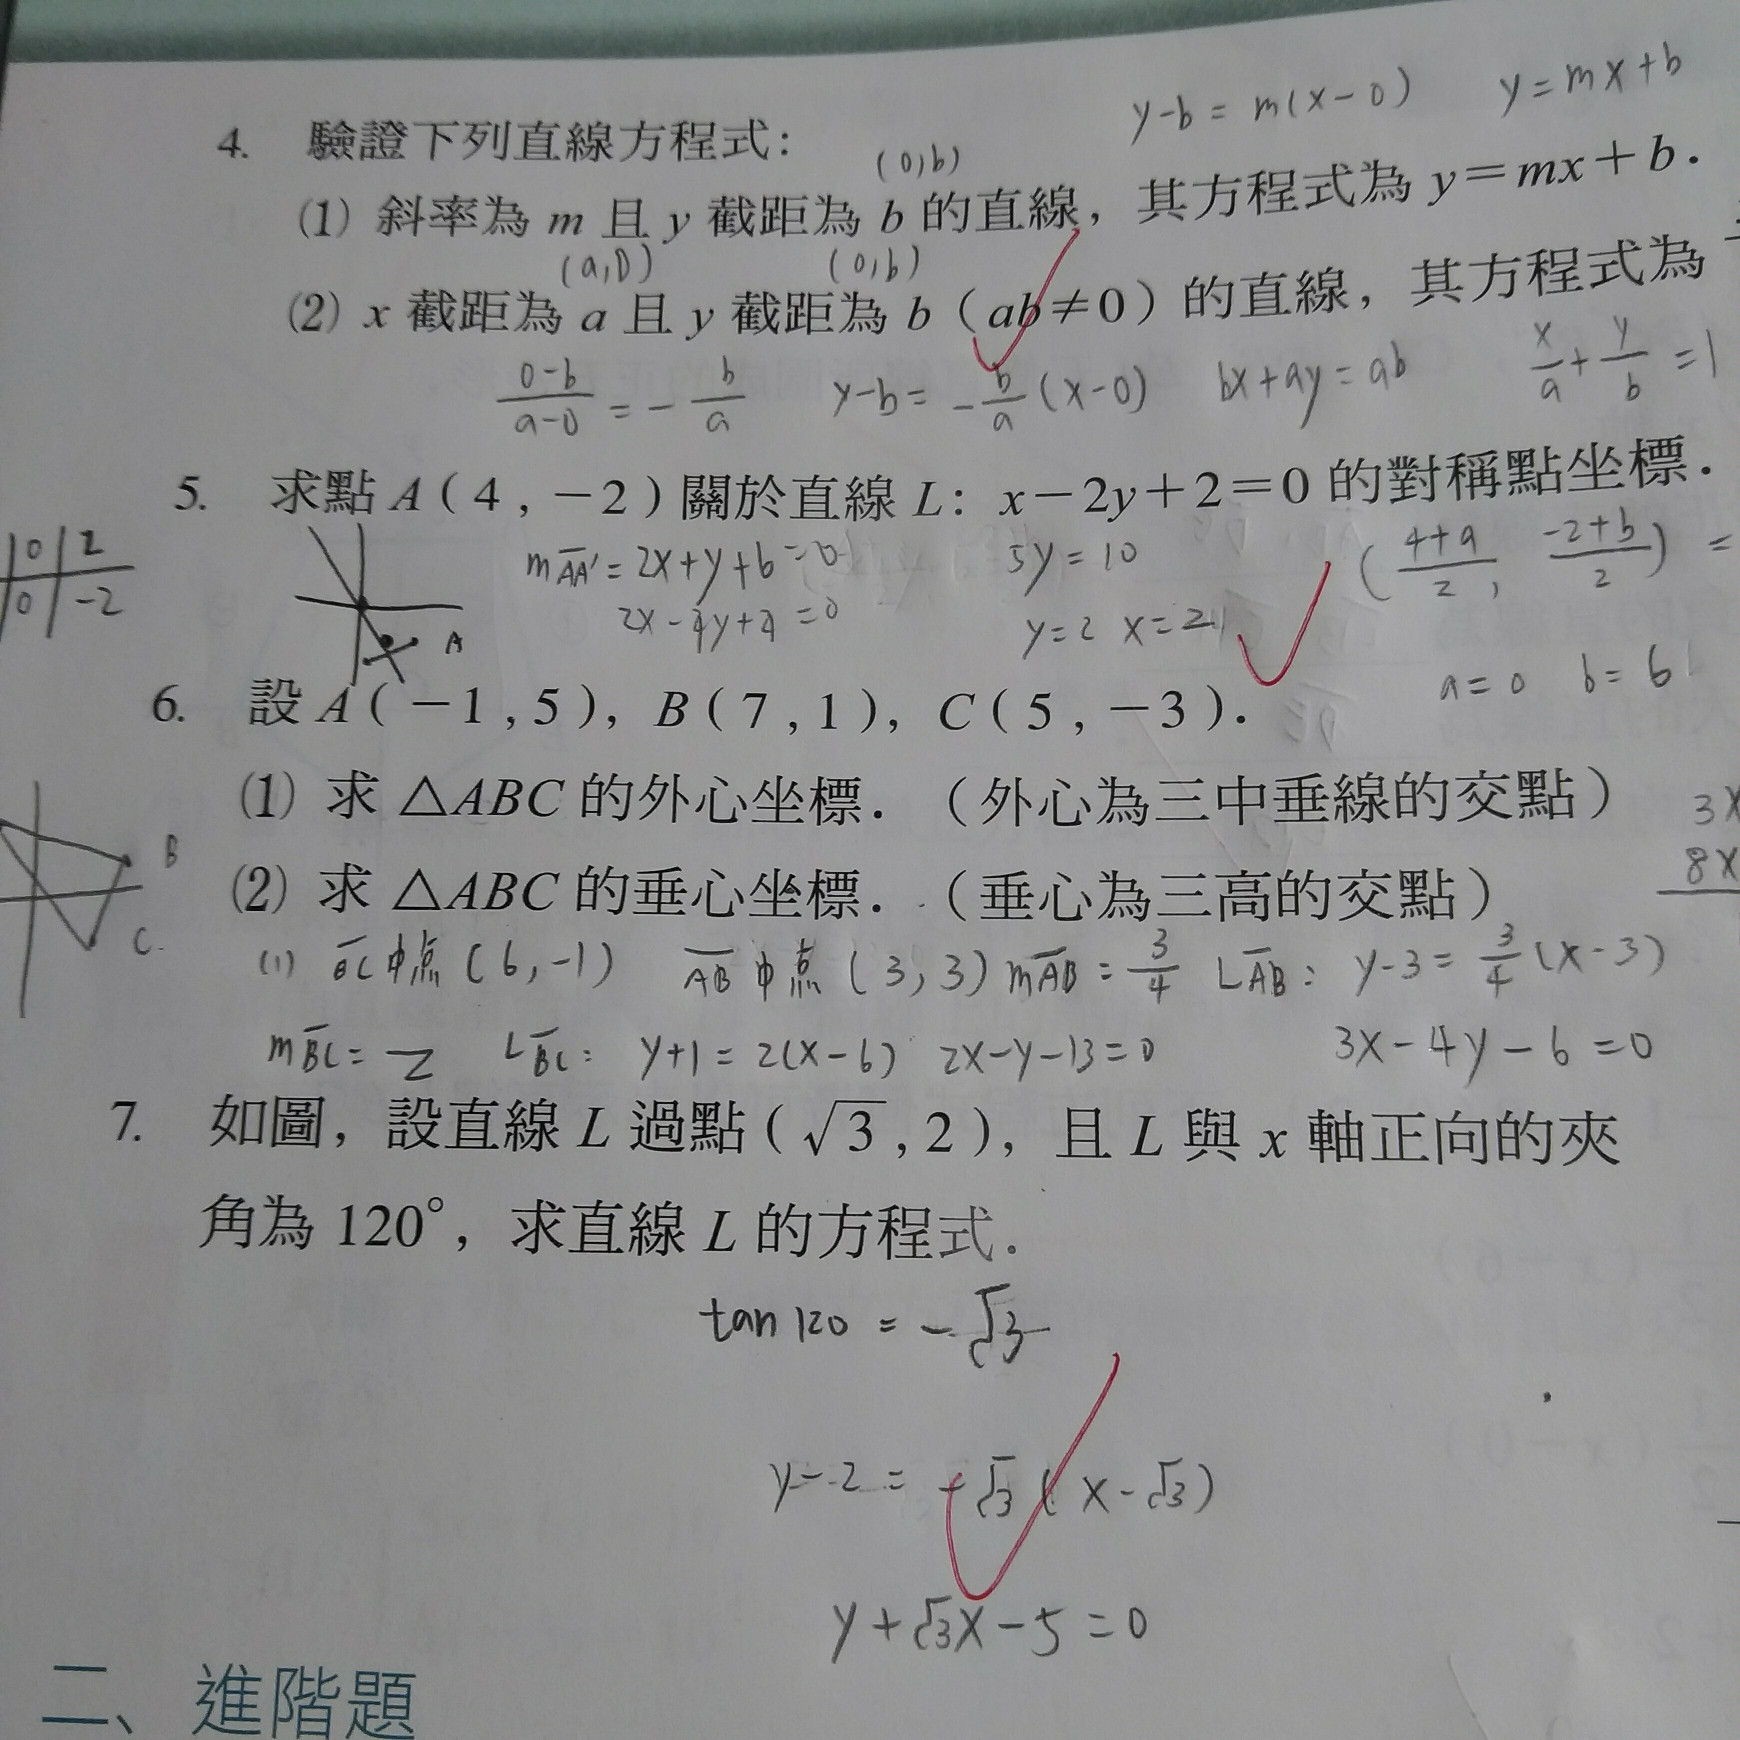 y-b = m(x-0) y = mx+b
4. 驗證下列直線方程式：
(0,b)
(1) 斜率為 m 且 y 截距為 b 的直線，其方程式為 y=mx+b．
(a,0) (0,b)
(2) x 截距為 a 且 y 截距為 b（ab≠0）的直線，其方程式為
(0-b)/(a-0) = -b/a y-b = -b/a (x-0) bx+ay = ab x/a + y/b = 1
5. 求點 A（4，－2）關於直線 L：x－2y＋2＝0 的對稱點坐標．
0 2
0 -2
A
mAA' = 2x+y+b=0 5y=10 ((4+a)/2, (-2+b)/2) =
2x-4y+4=0 y=2 x=2
a=0 b=6
6. 設 A（－1，5），B（7，1），C（5，－3）．
(1) 求 △ABC 的外心坐標．（外心為三中垂線的交點）
3x
B
8x
(2) 求 △ABC 的垂心坐標．（垂心為三高的交點）
C
(1) BC中点 (6,-1) AB中点 (3,3) mAB = 3/4 LAB: y-3 = 3/4 (x-3)
mBC = LBC: y+1=2(x-6) 2x-y-13=0 3x-4y-6=0
7. 如圖，設直線 L 過點（√3，2），且 L 與 x 軸正向的夾
角為 120°，求直線 L 的方程式．
tan 120 = -√3
y-2 = -√3 (x-√3)
y+√3x-5=0
二、進階題